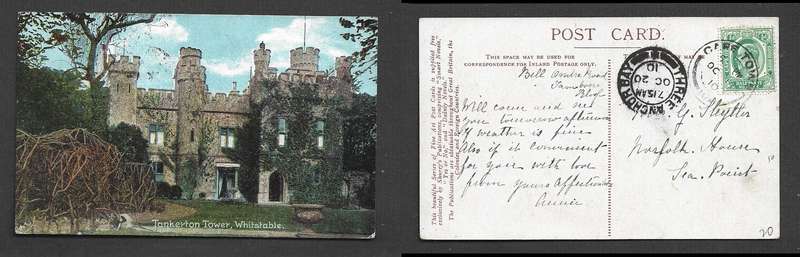 Tankerton Tower, Whitstable.
POST CARD.
THIS SPACE MAY BE USED FOR
CORRESPONDENCE FOR INLAND POSTAGE ONLY.
This beautiful Series of Fine Art Post Cards is supplied free
exclusively by Shurey's Publications, comprising "Smart Novels,"
"Yes or No," and "Dainty Novels."
The Publications are obtainable throughout Great Britain, the
Colonies and Foreign Countries.
Road
Will come and see
you tomorrow afternoon
if weather is fine
Also if it convenient
for you with love
from yours Affectionate
Annie
THREE ANCHOR BAY
7.15 AM
OC 20
10
11
CAPE TOWN
G. Steytler
Norfolk House
Sea Point
20